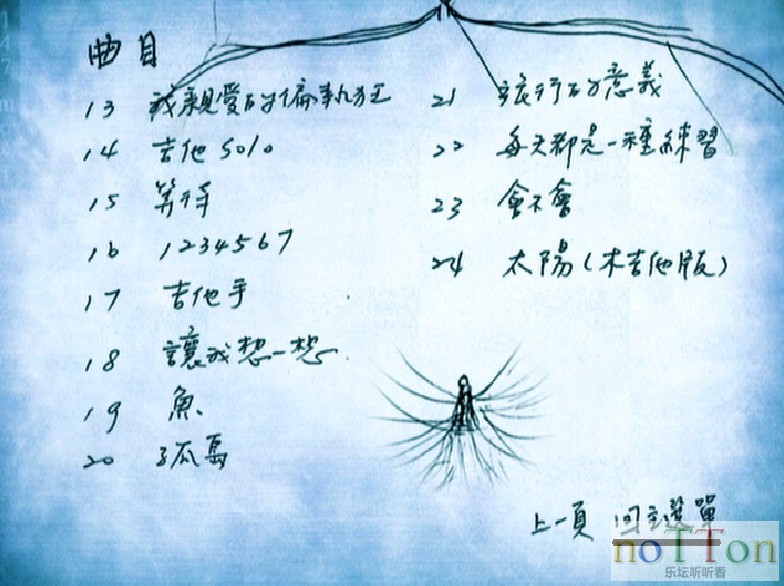 曲目
13 我親愛的偏執狂
14 吉他 Solo
15 等待
16 1234567
17 吉他手
18 讓我想一想
19 魚
20 孤島
21 旅行的意義
22 每天都是一種練習
23 會不會
24 太陽(木吉他版)
上一頁 回主選單
noTTon
乐坛听听看